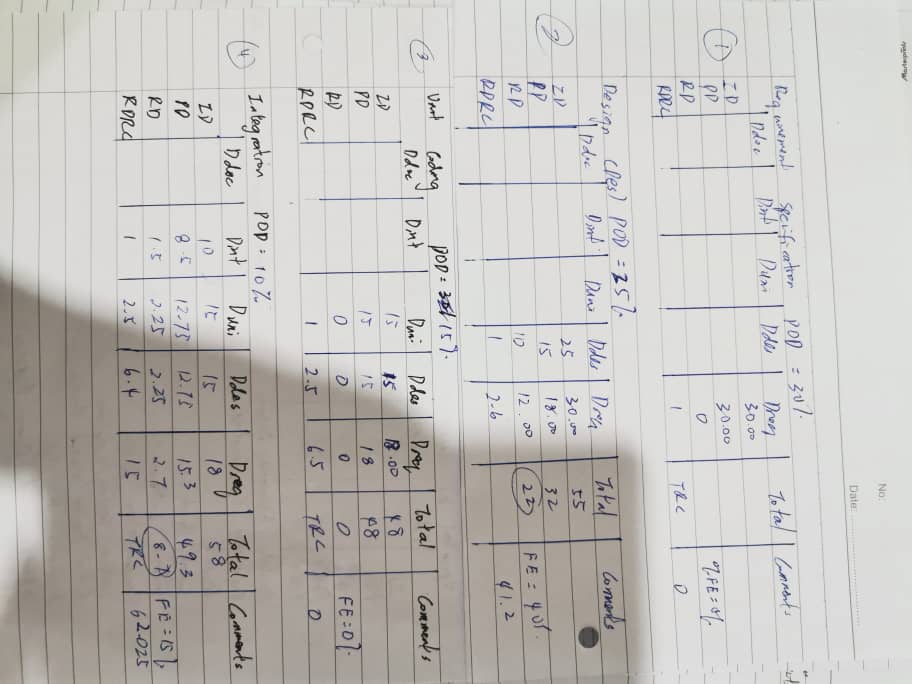 No:
Date:
①
Requirement Specification POD = 30%
Ddoc Dint Duni Ddes Dreq Total Comments
ID 30.00
PD 30.00
RD 0 %FE=0%
RDRC 1 TRC 0
②
Design (Des) POD = 25%
Ddoc Dint. Duni Ddes Dreq Total Comments
ID 25 30.00 55
PD 15 18.00 32
RD 10 12.00 22 FE = 40%.
RDRC 1 2.6 41.2
③
Unit Coding POD = 15%.
Ddoc Dint Duni Ddes Dreq Total Comments
ID 15 15 18.00 48
PD 15 15 18 48
RD 0 0 0 0 FE=0%.
RDRC 1 2.5 6.5 TRC 0
④
Integration POD = 10%
Ddoc Dint Duni Ddes Dreq Total Comments
ID 10 15 15 18 58
PD 8.5 12.75 12.75 15.3 49.3
RD 1.5 2.25 2.25 2.7 8.7 FE=15%
RDRC 1 2.5 6.4 15 TRC 62.025